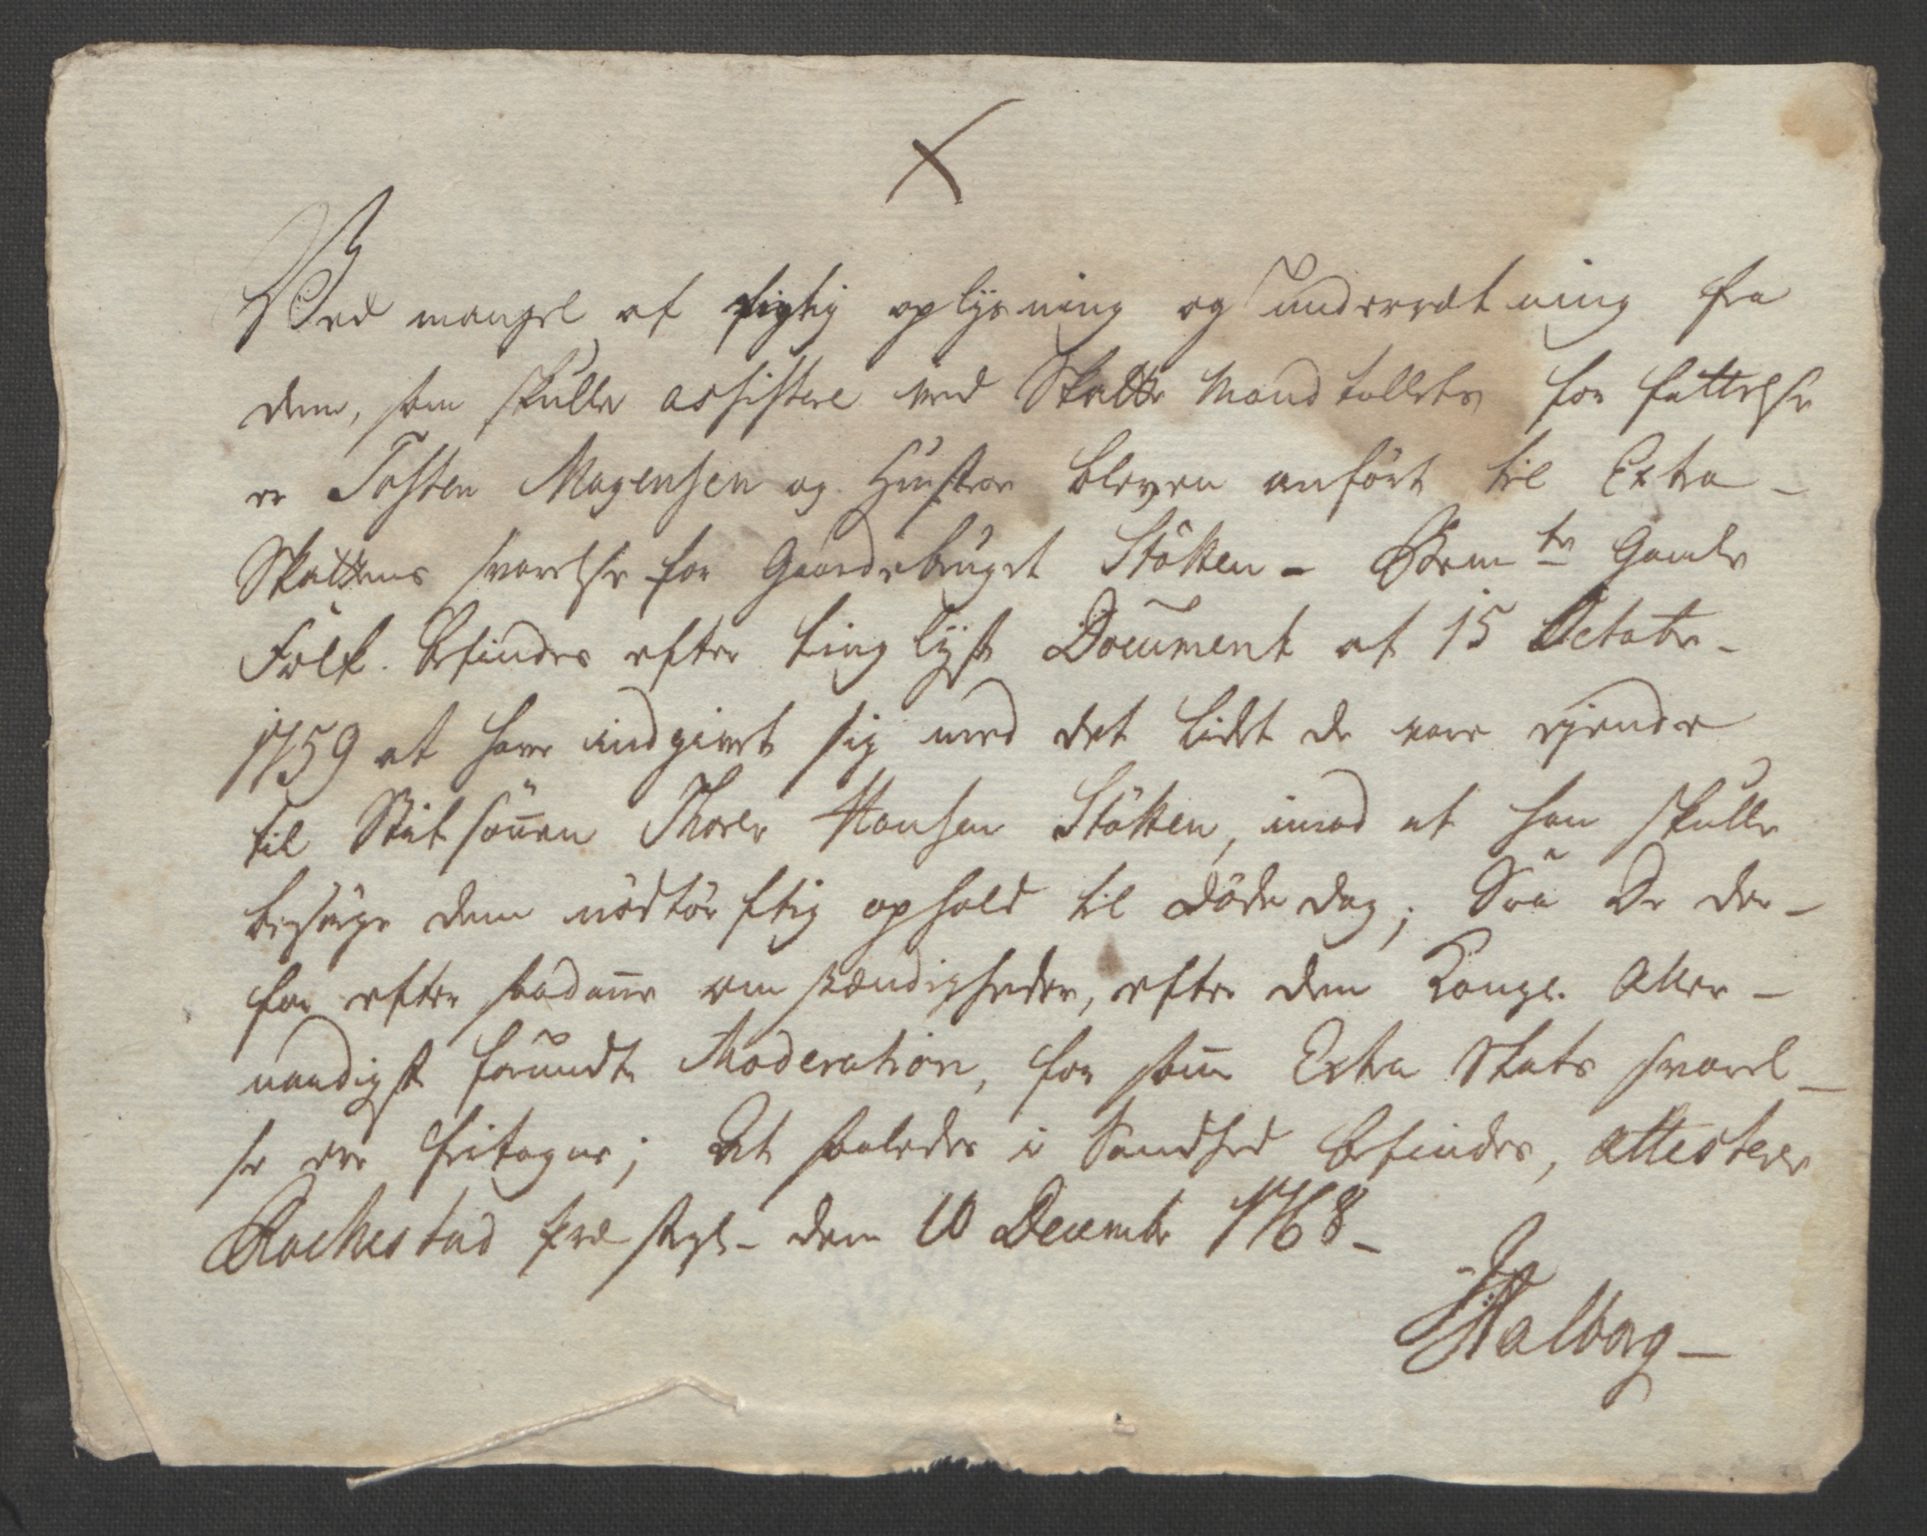 Ved mangel af rigtig oplysning og underretning fra
dem, som skulle assistere ved Skatte Mandtallets for fattelse
er Tosten Mogensen og Hustroe bleven anført til Extra -
Skattens svarelse for Gaardebruget Stökken - Bem.te Gamle
Folk befindes efter tinglyst Document af 15 Octobr -
1759 at have indgivet sig med det lidet de vare ejende
til Stifsönen Thorer Hansen Stökken, imod at han skulle
besörge dem nödtörftig ophold til Döde dag; Saa De der -
for efter saadanne omstændigheder, efter den Kongl. Aller -
naadigst forundte Moderation, for saa Extra Skats svarel -
se ere fritagne; At saaledes i Sandhed befindes, attesterer
Rackestad præstegl - den 10 Decembr 1768 -
Aalborg -